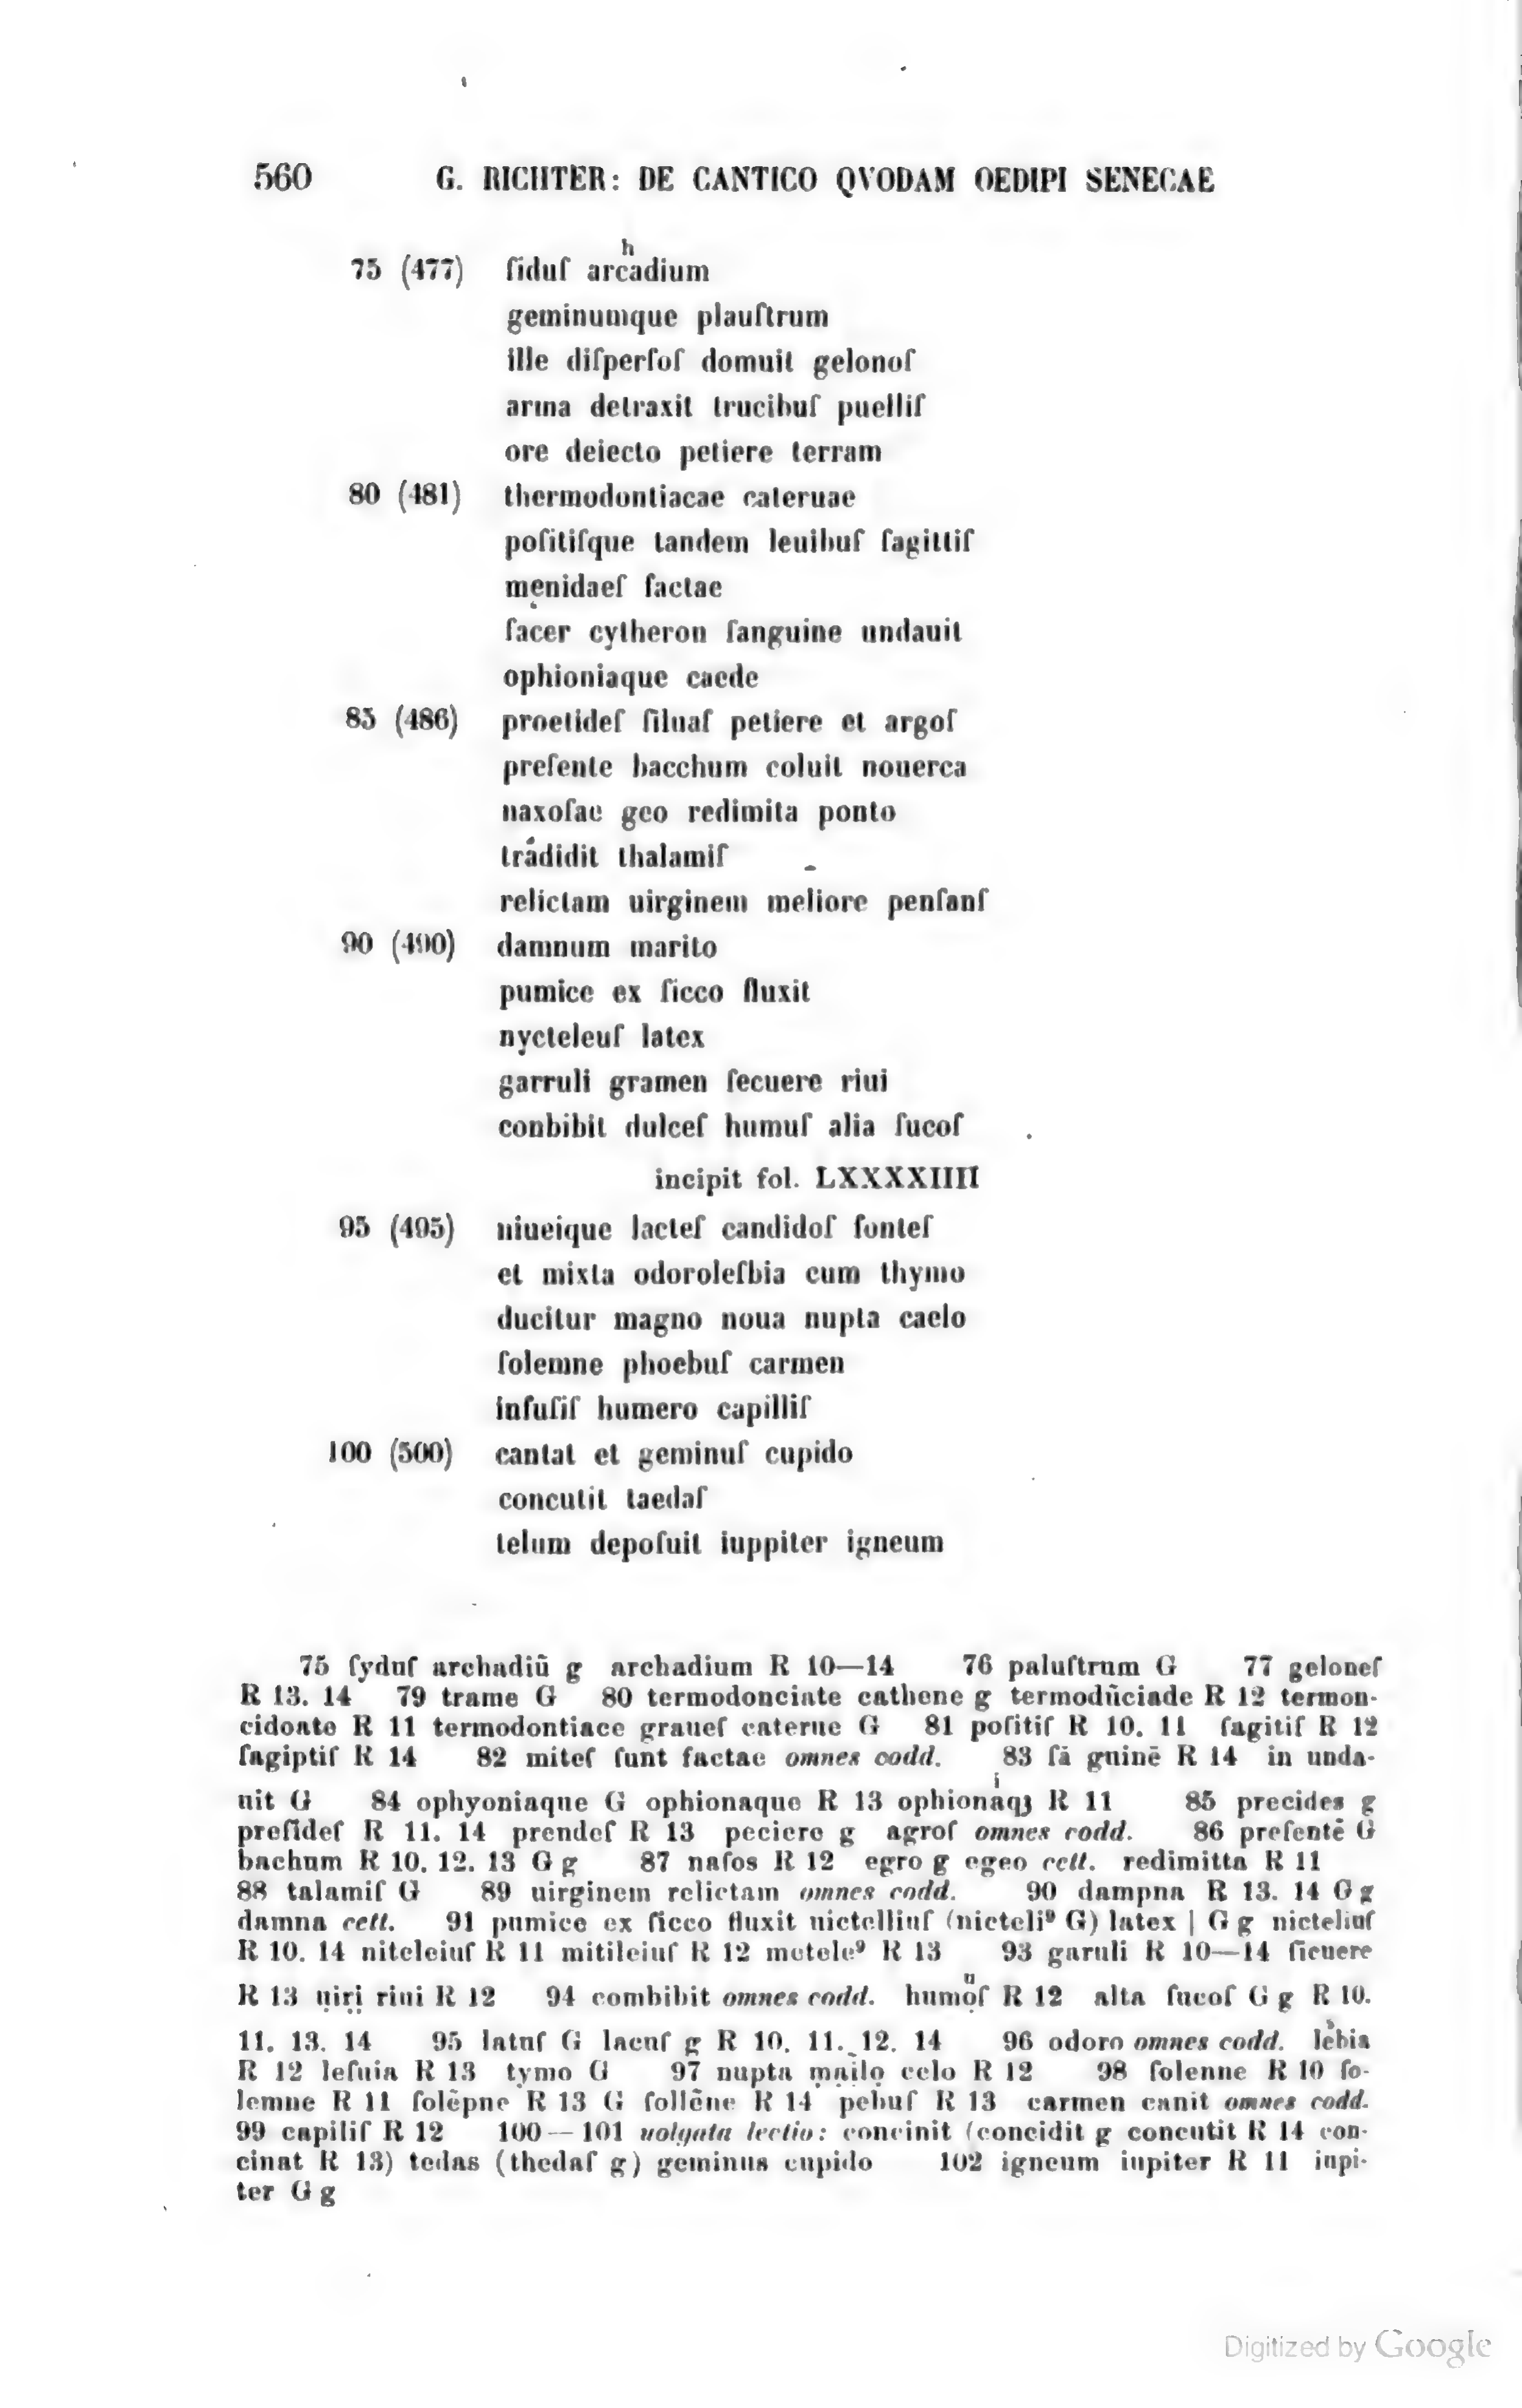 560 G. RICHTER: DE CANTICO QVODAM OEDIPI SENECAE
h
75 (477) ſiduſ arcadium
geminumque plauſtrum
ille diſperſoſ domuit gelonoſ
arma detraxit trucibuſ puelliſ
ore deiecto petiere terram
80 (481) thermodontiacae cateruae
poſitiſque tandem leuibuſ ſagittiſ
mẹnidaeſ factae
ſacer cytheron ſanguine undauit
ophioniaque caede
85 (486) proetideſ ſiluaſ petiere et argoſ
preſente bacchum coluit nouerca
naxoſae geo redimita ponto
trádidit thalamiſ
relictam uirginem meliore penſanſ
90 (490) damnum marito
pumice ex ſicco fluxit
nycteleuſ latex
garruli gramen ſecuere riui
conbibit dulceſ humuſ alia ſucoſ
incipit fol. LXXXXIIII
95 (495) niueique lacteſ candidoſ fonteſ
et mixta odoroleſbia cum thymo
ducitur magno noua nupta caelo
ſolemne phoebuſ carmen
infuſiſ humero capilliſ
100 (500) cantat et geminuſ cupido
concutit taedaſ
telum depoſuit iuppiter igneum
75 ſyduſ archadiū g archadium R 10—14 76 paluſtrum G 77 geloneſ
R 13. 14 79 trame G 80 termodonciate cathene g termodūciade R 12 termon-
cidoate R 11 termodontiace graueſ caterue G 81 poſitiſ R 10. 11 ſagitiſ R 12
ſagiptiſ R 14 82 miteſ ſunt factae omnes codd. 83 ſā guinē R 14 in unda-
i
uit G 84 ophyoniaque G ophionaque R 13 ophionaqꝫ R 11 85 precides g
preſideſ R 11. 14 prendeſ R 13 peciere g agroſ omnes codd. 86 preſentē G
bachum R 10. 12. 13 G g 87 naſos R 12 egro g egeo cett. redimitta R 11
88 talamiſ G 89 uirginem relictam omnes codd. 90 dampna R 13. 14 G g
damna cett. 91 pumice ex ſicco fluxit nictelliuſ (nicteliꝰ G) latex | G g nicteliuſ
R 10. 14 niteleiuſ R 11 mitileiuſ R 12 meteleꝰ R 13 93 garuli R 10—14 ſicuere
u
R 13 ụiṛị riui R 12 94 combibit omnes codd. humọſ R 12 alta ſucoſ G g R 10.
11. 13. 14 95 latuſ G lacuſ g R 10. 11. 12. 14 96 odoro omnes codd. lebia
R 12 leſuia R 13 tymo G 97 nupta ṃạiḷọ celo R 12 98 ſolenne R 10 ſo-
lemne R 11 ſolēpne R 13 G ſollēne R 14 pebuſ R 13 carmen canit omnes codd.
99 capiliſ R 12 100—101 uolgata lectio: concinit (concidit g concutit R 14 con-
cinat R 13) tedas (thedaſ g) geminus cupido 102 igneum iupiter R 11 iupi-
ter G g
Digitized by Google